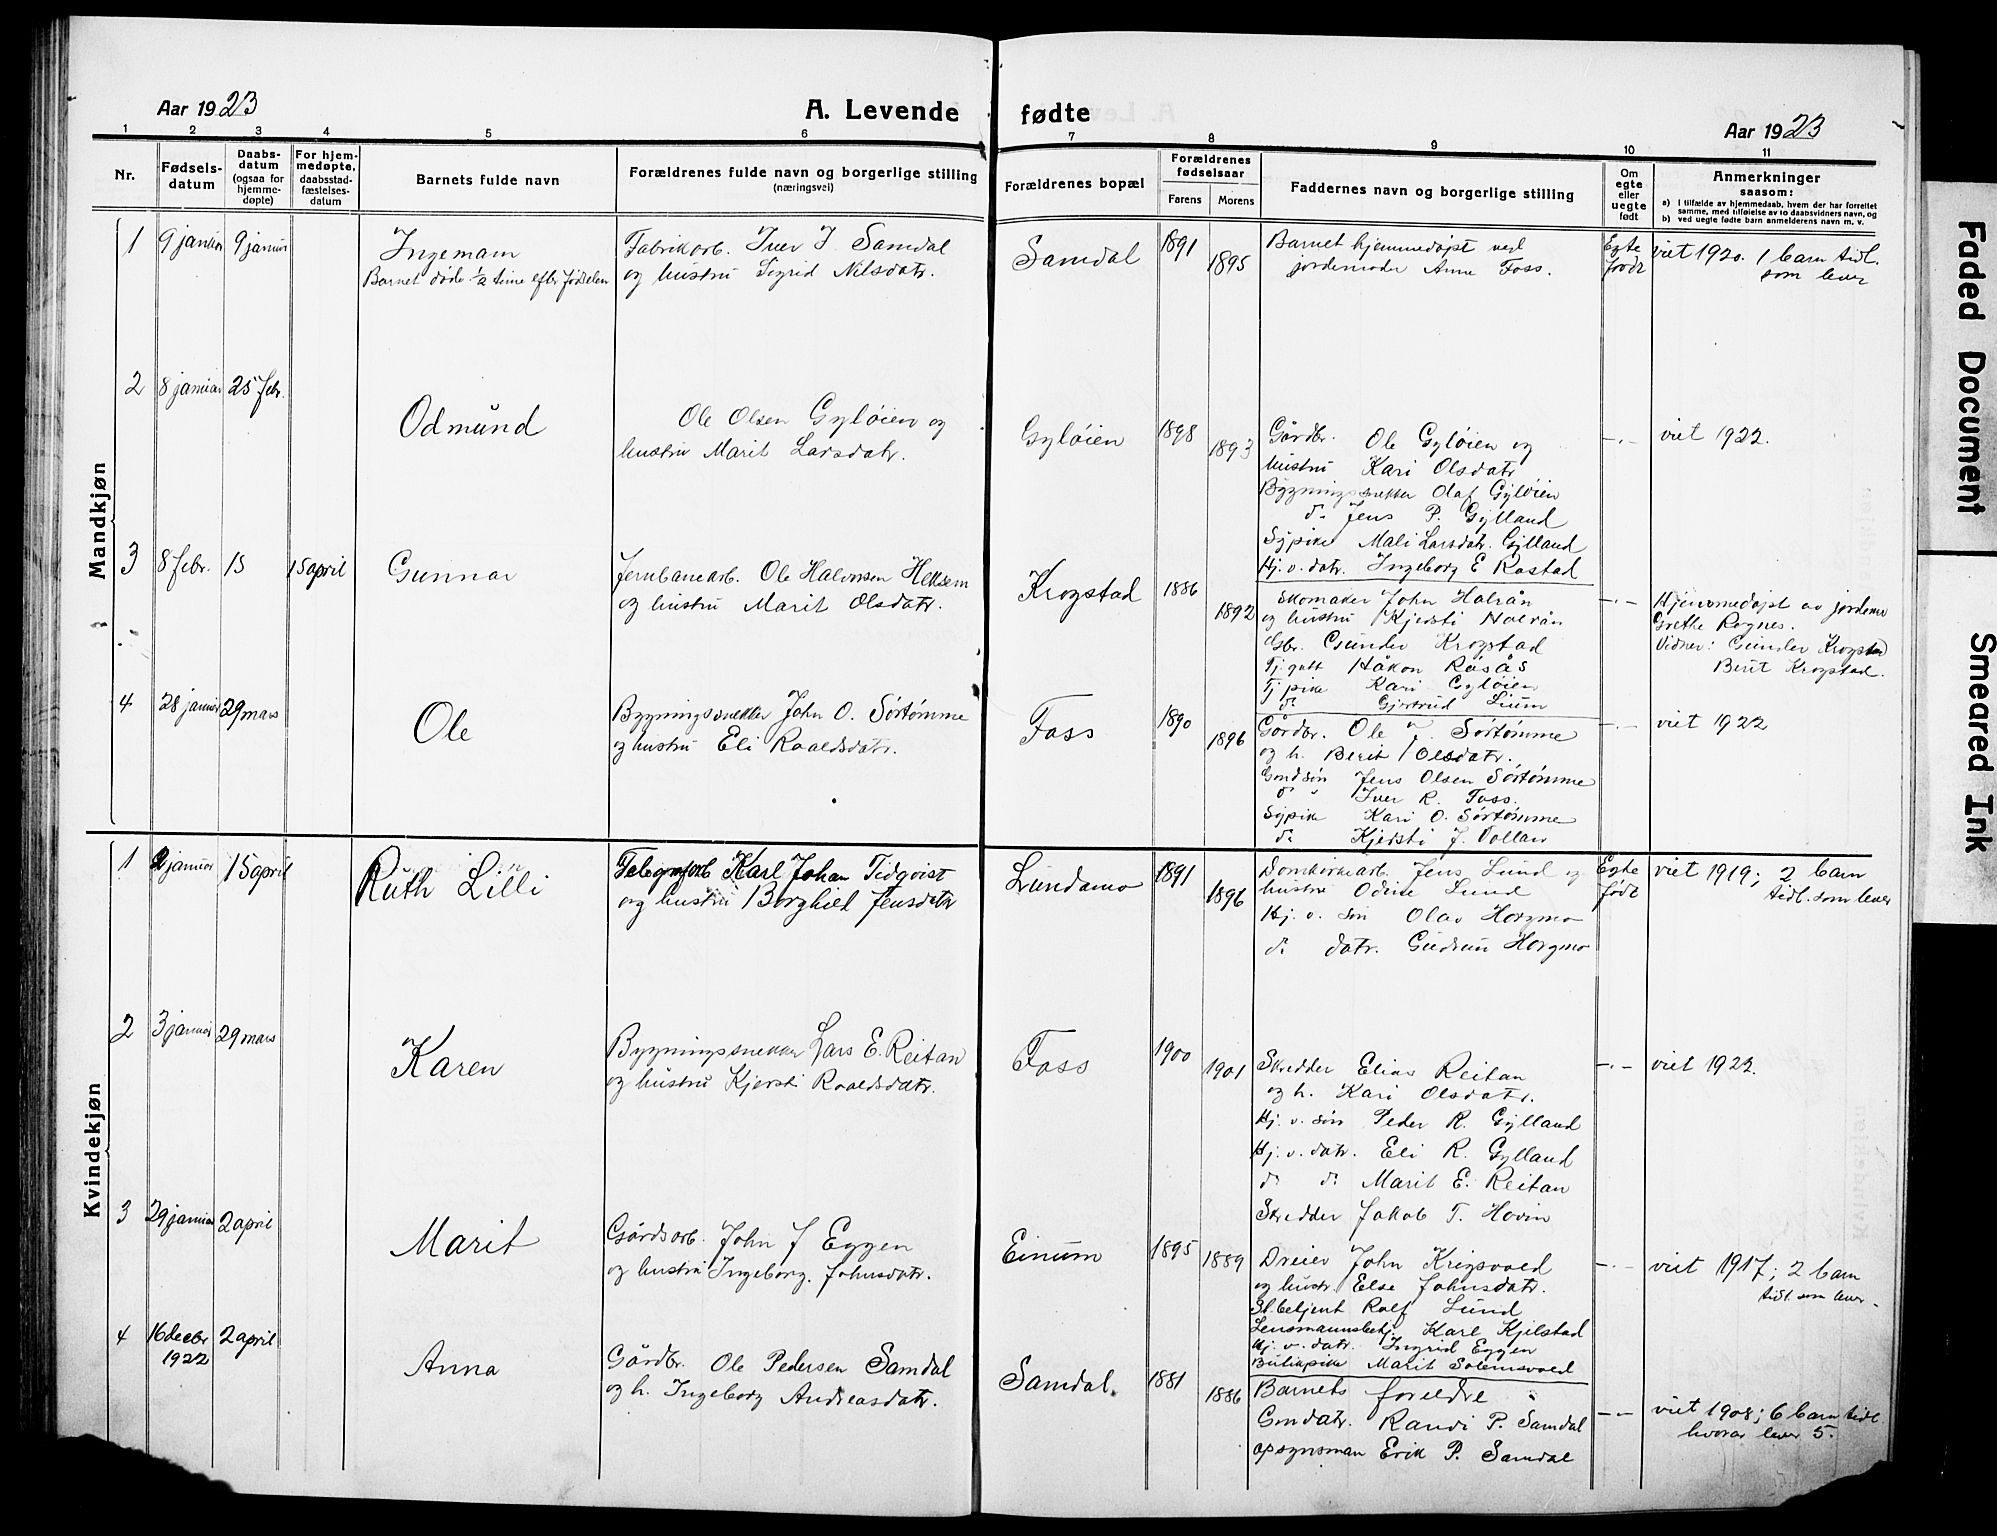 Aar 1923
A. Levende fødte
Aar 1923
1 2 3 4 5 6 7 8 9 10 11
Nr.
Fødsels-
datum
Daabs-
datum
(ogsaa for
hjemme-
døpte)
For hjem-
medøpte,
daabsstad-
fæstelses-
datum
Barnets fulde navn
Forældrenes fulde navn og borgerlige stilling
(næringsvei)
Forældrenes bopæl
Forældrenes
fødselsaar
Farens Morens
Faddernes navn og borgerlige stilling
Om
egte
eller
uegte
født
Anmerkninger
saasom:
a) I tilfælde av hjemmedaab, hvem der har forrettet
samme, med tilføielse av to daabsvidners navn, og
b) ved uegte fødte barn anmelderens navn m. v.
Mandkjøn
1 9 januar 9 januar
Ingemam
Barnet døde ½ time efter fødselen
Fabrikarb. Iver J. Samdal
og hustru Sigrid Nilsdatr.
Samdal
1891
1895
Barnet hjemmedøpt ved
jordemoder Anne Foss.
Egte
født
viet 1920. 1 barn tidl.
som lever
2 8 januar 25 febr.
Odmund
Ole Olsen Gyløien og
hustru Marit Larsdatr.
Gyløien
1898
1893
Gårdbr. Ole Gyløien og
hustru Kari Olsdatr
Bygningssnekker Olaf Gyløien
do Jens P. Gylland
Sypike Mali Larsdatr. Gylland
Hj. v. datr. Ingeborg E Rostad
-"-
viet 1922.
3 8 febr. 15 15 april
Gunnar
Jernbanearb. Ole Halvorsen Heksem
og hustru Marit Olsdatr.
Krogstad
1886
1892
Skomaker John Halrån
og hustru Kjersti Halrån
Gbr. Gunder Krogstad
Tj. gutt Håkon Røsås
Tj pike Kari Gyløien
do Gjertrud Lium
-"-
Hjemmedøpt av jordemor
Grethe Rognes.
Vidner: Gunder Krogstad
Berit Krogstad.
4 28 januar 29 mars
Ole
Bygningssnekker John O. Sørtømme
og hustru Eli Roaldsdatr.
Foss
1890
1896
Gårdbr. Ole Sørtømme
og h. Berit Olsdatr.
Gmdsøn Jens Olsen Sørtømme
do " Iver R. Foss.
Sypike Kari O. Sørtømme
do Kjersti J. Vollan
-"-
viet 1922
Kvindekjøn
1 2 januar 15 april
Ruth Lilli
Telegrafarb Karl Johan Tidqvist
og hustru Borghild Jensdatr
Lundamo
1891
1896
Domkirkearb. Jens Lund og
hustru Odine Lund
Hj. v. søn Olav Horgmo
do datr. Gudrun Horgmo
Egte
født
viet 1919; 2 barn
tidl. som lever
2 3 januar 29 mars
Karen
Bygningssnekker Lars E. Reitan
og hustru Kjersti Roaldsdatr.
Foss
1900
1901
Skredder Elias Reitan
og h. Kari Olsdatr.
Hj. v. søn Peder R. Gylland
Hj. v. datr. Eli R. Gylland
do do Marit E. Reitan
Skredder Jakob T. Hovin
-"-
viet 1922.
3 29 januar 2 april
Marit
Gårdsarb. John J Eggen
og hustru Ingeborg Johnsdatr.
Einum
1895
1889
Dreier John Krigsvold
og hustr. Else Johnsdatr.
St. betjent Rolf Lund
Lensmannsbetj. Karl Kjelstad
Hj. v. datr. Ingrid Eggen
Butikpike Marit Solemsvold
-"-
viet 1917; 2 barn
tidl. som lever.
4 16 decbr 2 april
1922
Anna
Gårdbr. Ole Pedersen Samdal
og h. Ingeborg Andreasdatr.
Samdal.
1881
1886
Barnets foreldre
Gmdatr. Randi P. Samdal
opsynsman Erik P. Samdal
-"-
viet 1908; 6 barn tidl
hvorav lever 5.
Faded Document
Smeared Ink